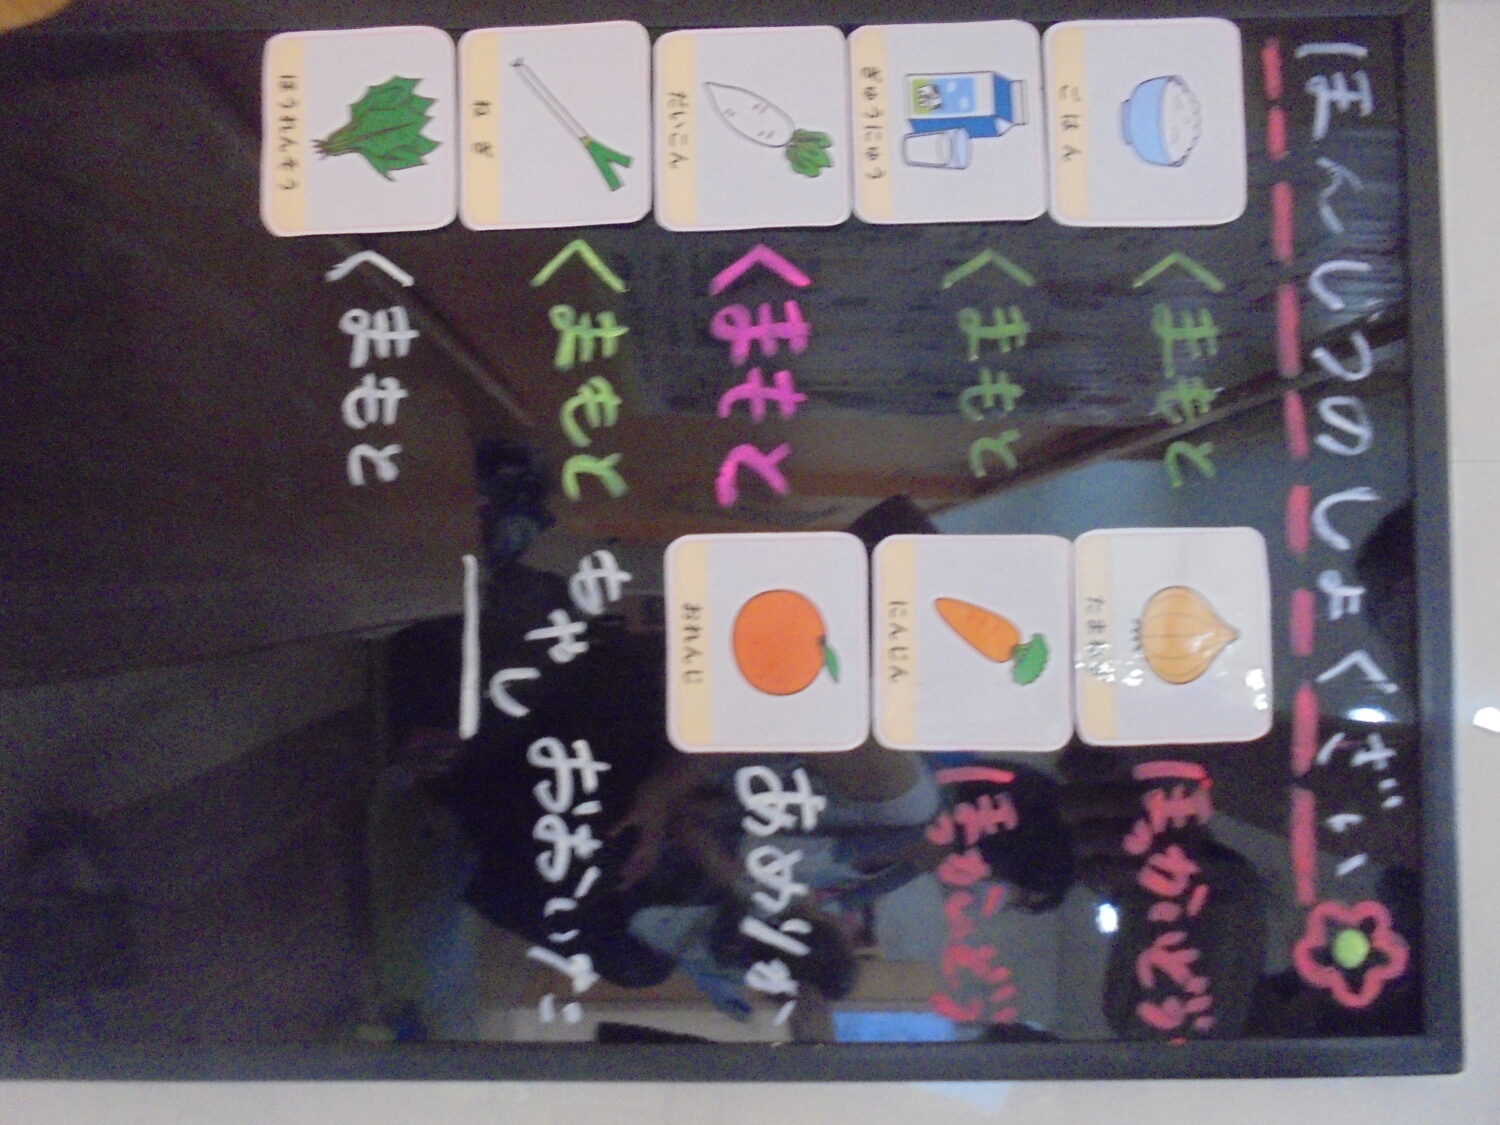 ほんしつのしょくざい
ごはん くまもと たまねぎ ほっかいどう
ぎゅうにゅう くまもと にんじん ほっかいどう
だいこん くまもと おれんじ あめりか
ねぎ くまもと もやし おおいた
ほうれんそう くまもと